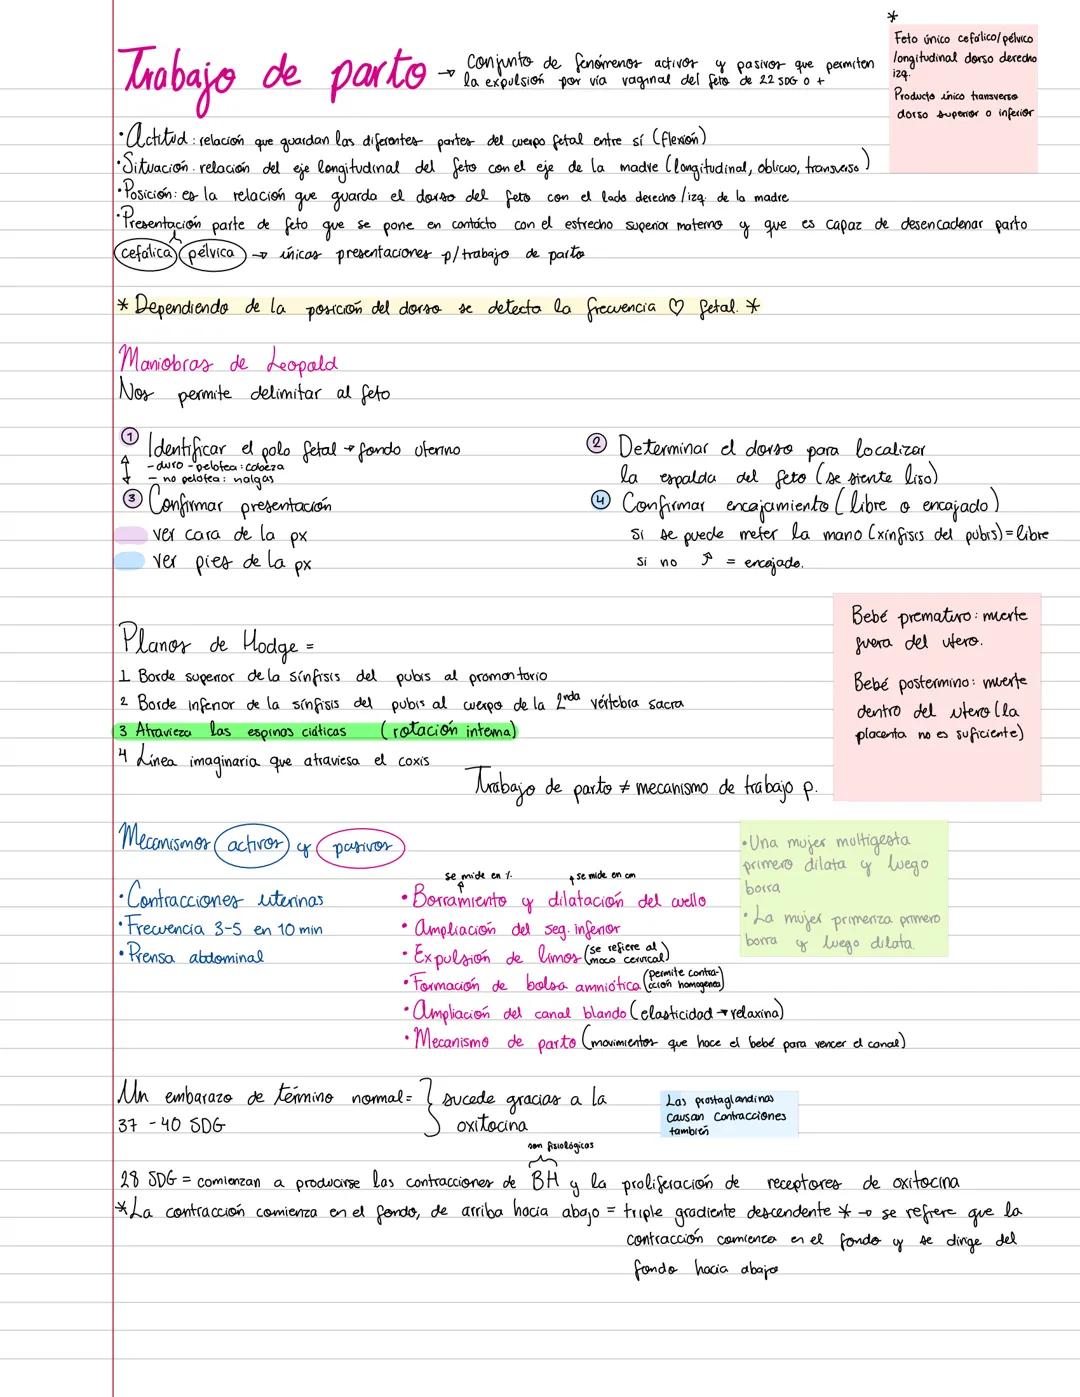 *
Feto único cefálico/pélvico
/longitudinal dorso derecho
izq.
Producto único transverso
dorso superior o inferior
Trabajo de parto → Conjunto de fenómenos activos y pasivos que permiten
la expulsión por vía vaginal del feto de 22 SDG o +
• Actitud: relación que guardan las diferentes partes del cuerpo fetal entre sí (flexión)
• Situación: relación del eje longitudinal del feto con el eje de la madre (longitudinal, oblicuo, transverso)
• Posición: es la relación que guarda el dorso del feto con el lado derecho/izq. de la madre
• Presentación parte de feto que se pone en contácto con el estrecho superior materno y que es capaz de desencadenar parto
cefálica pélvica → únicas presentaciones p/trabajo de parto
* Dependiendo de la posición del dorso se detecta la frecuencia ♡ fetal. *
Maniobras de Leopold
Nos permite delimitar al feto
① Identificar el polo fetal → fondo uterino
- duro - pelotea: cabeza
- no pelotea: nalgas
② Determinar el dorso para localizar
la espalda del feto (se siente liso)
③ Confirmar presentación
ver cara de la px
ver pies de la px
④ Confirmar encajamiento (libre o encajado)
si se puede meter la mano (xínfisis del pubis) = libre
si no ↗ = encajado.
Planos de Hodge =
1 Borde superior de la sínfisis del pubis al promontorio
2 Borde inferior de la sínfisis del pubis al cuerpo de la 2nda vértebra sacra
3 Atravieza las espinas ciáticas (rotación interna)
4 Línea imaginaria que atraviesa el coxis
Bebé prematuro: muerte
fuera del utero.
Bebé postermino: muerte
dentro del utero (la
placenta no es suficiente)
Trabajo de parto ≠ mecanismo de trabajo p.
Mecanismos activos y pasivos
• Contracciones uterinas
• Frecuencia 3-5 en 10 min
• Prensa abdominal
se mide en %
↑ se mide en cm
• Borramiento y dilatación del cuello
• Ampliación del seg. inferior
• Expulsión de limos (se refiere al moco cervical)
• Formación de bolsa amniótica (permite contra-cción homogenea)
• Ampliación del canal blando (elasticidad → relaxina)
• Mecanismo de parto (movimientos que hace el bebé para vencer el canal)
• Una mujer multigesta
primero dilata y luego
borra
• La mujer primeriza primero
borra y luego dilata
Un embarazo de término normal =
37 - 40 SDG
} sucede gracias a la
oxitocina
Las prostaglandinas
causan contracciones
también
son fisiológicas
28 SDG = comienzan a producirse las contracciones de BH y la proliferación de receptores de oxitocina
* La contracción comienza en el fondo, de arriba hacia abajo = triple gradiente descendente * → se refiere que la
contracción comienza en el fondo y se dirige del
fondo hacia abajo